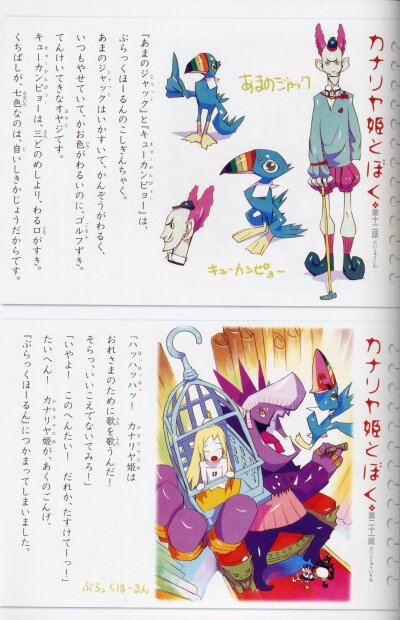 カナリヤ姫とぼく 第十二話
だいじゅうにわ
あまのジャック
キューカンピョー
『あまのジャック』と『キューカンピョー』は、
ぶらっくほーるんのこしぎんちゃく。
あまのジャックはいかすいて、かんぞうがわるく、
いつもやせていて、かお色がわるいのに、ゴルフずき。
てんけいてきなオヤジです。
キューカンピョーは、三どのめしより、わる口がすき。
くちばしが、七色なのは、自いしきかじょうだからです。
カナリヤ姫とぼく 第二十一話
「ハッハッハッ! カナリヤ姫は
おれさまのために歌を歌うんだ!
そらっ、いいこえでないてみろ!」
「いやよ! このへんたい! だれか、たすけてーっ」
たいへん! カナリヤ姫が、あくのごんげ、
『ぶらっくほーるん』につかまってしまいました。
ぶらっくほーるん